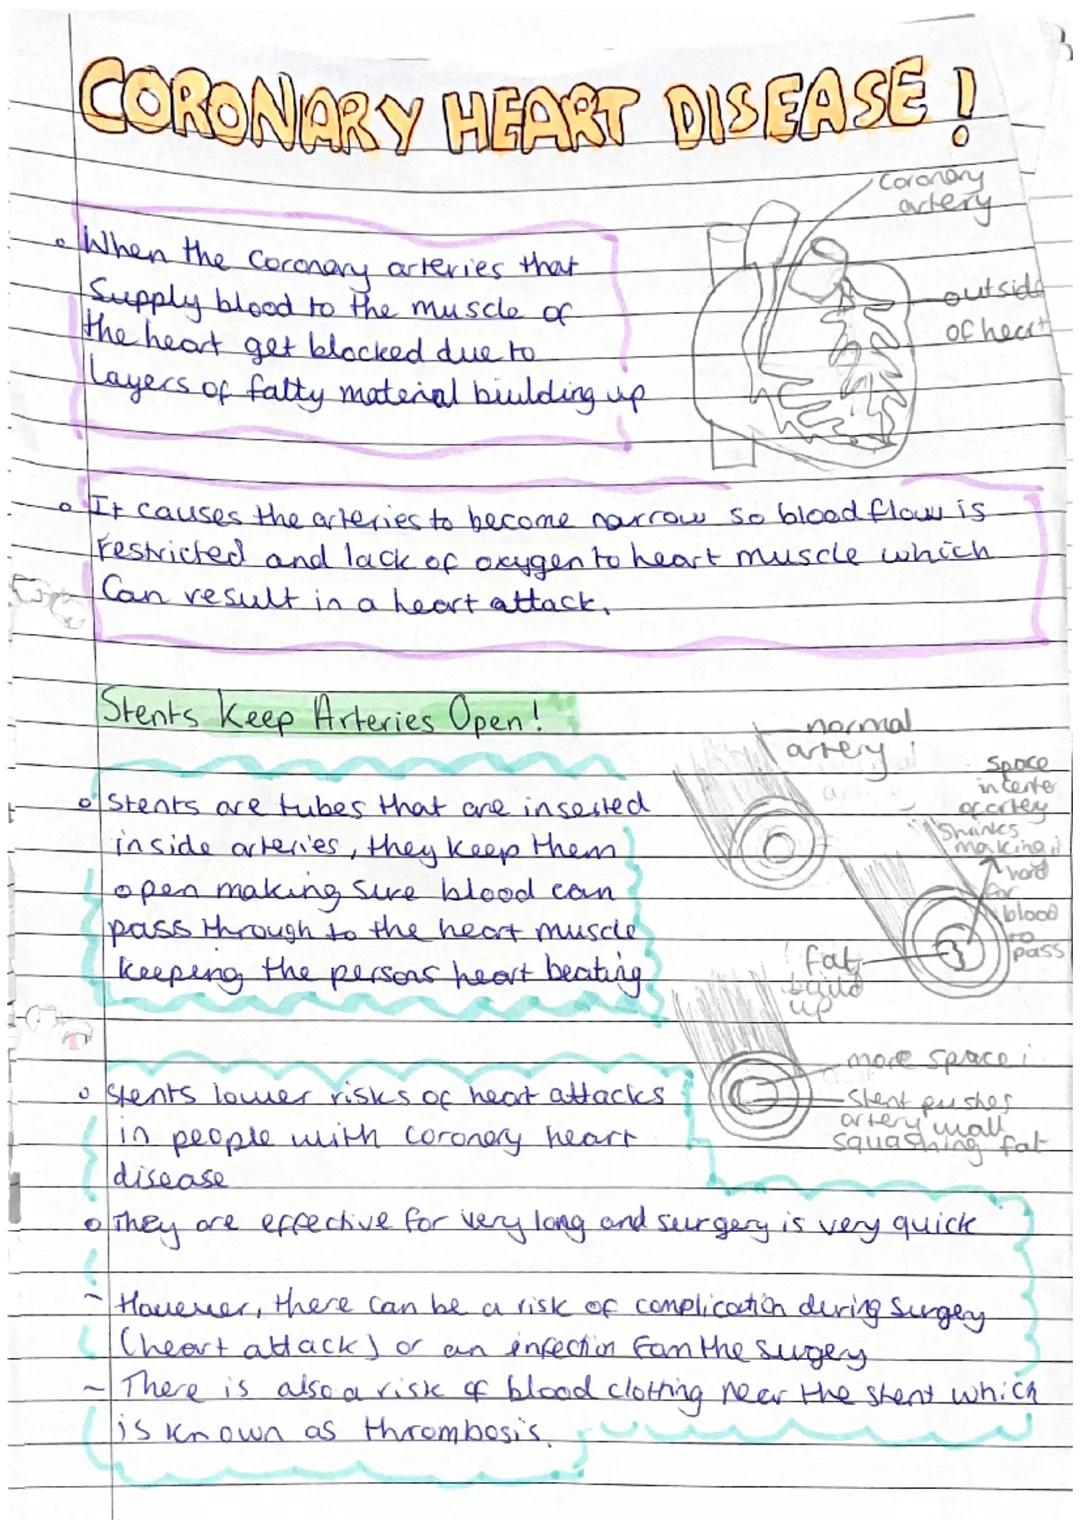 CORONARY HEART DISEASE!
Coronary
artery
When the coronary arteries that
Supply blood to the muscle of
the heart get blocked due to
layers of fatty material biulding up
outside
of heart
It causes the arteries to become narrow so blood flow is
restricted and lack of oxygen to heart muscle which
Can result in a heart attack.
Stents Keep Arteries Open!
normal
artery
Space
in center
of artery
Shrinks
making it
hard
for
blood
to
pass
Stents are tubes that are inserted
inside arteries, they keep them
open making sure blood can
pass through to the heart muscle
keeping the persons heart beating
fat
build
up
more space
Stent pushes
artery wall
squashing fat
Stents lower risks of heart attacks
in people with coronary heart
disease
They are effective for very long and surgery is very quick
- However, there can be a risk of complication during surgery
(heart attack) or an infection from the surgery
- There is also a risk of blood clotting near the stent which
is known as thrombosis.